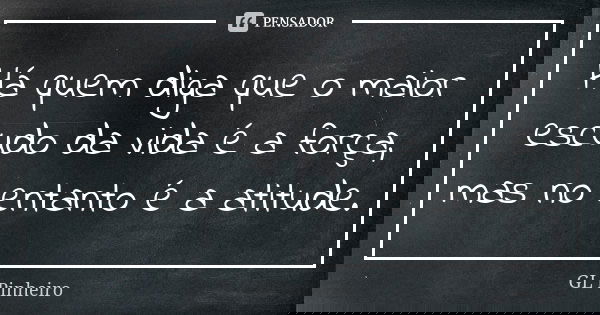 PENSADOR
Há quem diga que o maior
escudo da vida é a força,
mas no entanto é a atitude.
GL Pinheiro